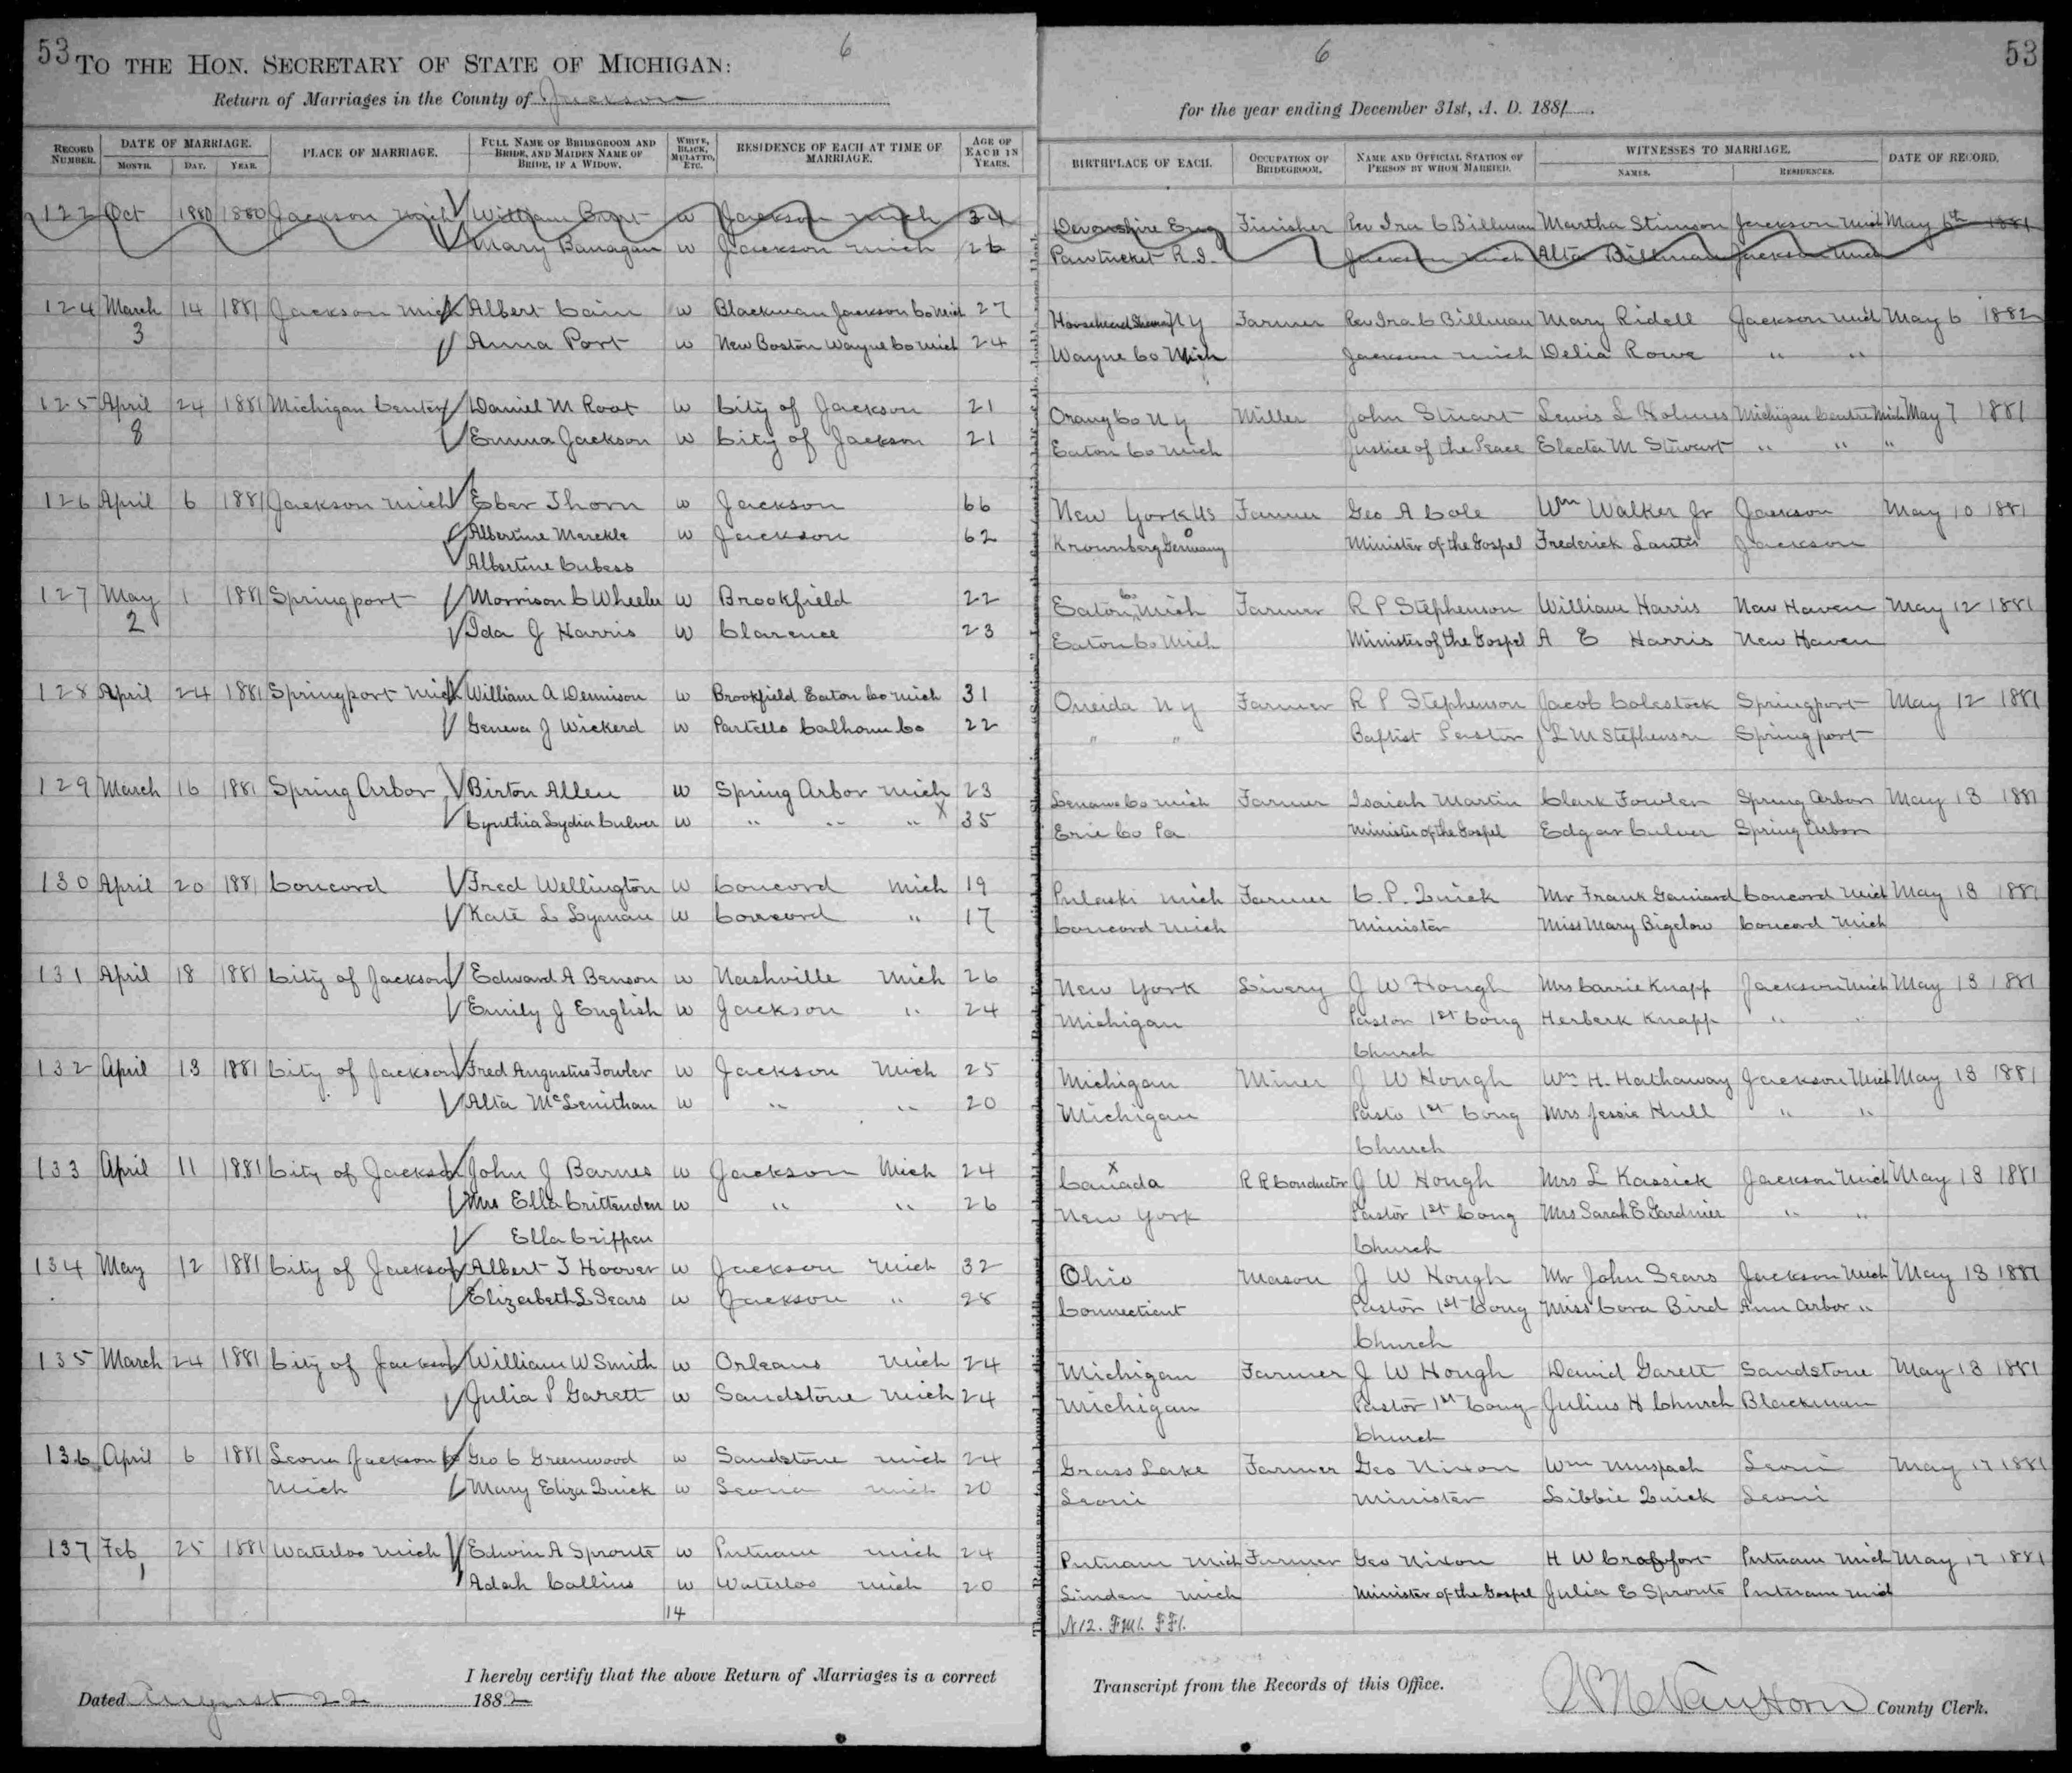 53 TO THE HON. SECRETARY OF STATE OF MICHIGAN: 6
Return of Marriages in the County of Jackson
RECORD NUMBER. DATE OF MARRIAGE. MONTH. DAY. YEAR. PLACE OF MARRIAGE. FULL NAME OF BRIDEGROOM AND BRIDE, AND MAIDEN NAME OF BRIDE, IF A WIDOW. WHITE, BLACK, MULATTO, ETC. RESIDENCE OF EACH AT TIME OF MARRIAGE. AGE OF EACH IN YEARS.
122 Oct 1880 1880 Jackson Mich William w Jackson Mich 34
Mary Banagan w Jackson Mich 26
124 March 14 1881 Jackson Mich Albert Cain w Blackman Jackson Co Mich 27
3 Anna Port w New Boston Wayne Co Mich 24
125 April 24 1881 Michigan Center Daniel M Root w City of Jackson 21
8 Emma Jackson w City of Jackson 21
126 April 6 1881 Jackson Mich Eber Thorn w Jackson 66
Albertine Merckle w Jackson 62
Albertine Cubess
127 May 1 1881 Springport Morrison C Wheeler w Brookfield 22
2 Ida J Harris w Clarence 23
128 April 24 1881 Springport Mich William A Dennison w Brookfield Eaton Co Mich 31
Geneva J Wickerd w Partello Calhoun Co 22
129 March 16 1881 Spring Arbor Birton Allen w Spring Arbor Mich 23
Cynthia Lydia Culver w " " " x 35
130 April 20 1881 Concord Fred Wellington w Concord Mich 19
Kate L Lyman w Concord " 17
131 April 18 1881 City of Jackson Edward A Benson w Nashville Mich 26
Emily J English w Jackson " 24
132 April 13 1881 City of Jackson Fred Augustus Fowler w Jackson Mich 25
Alta McLenithan w " " 20
133 April 11 1881 City of Jackson John J Barnes w Jackson Mich 24
Mrs Ella Crittenden w " " 26
Ella Crippen
134 May 12 1881 City of Jackson Albert T Hoover w Jackson Mich 32
Elizabeth L Sears w Jackson " 28
135 March 24 1881 City of Jackson William W Smith w Orleans Mich 24
Julia P Garett w Sandstone Mich 24
136 April 6 1881 Leona Jackson Co Geo C Greenwood w Sandstone Mich 24
Mich Mary Eliza Quick w Leona Mich 20
137 Feb 25 1881 Waterloo Mich Edwin A Sprouts w Putnam Mich 24
1 Adah Collins w Waterloo Mich 20
14
I hereby certify that the above Return of Marriages is a correct
Dated August 22 1882
6 53
for the year ending December 31st, A. D. 1881
BIRTHPLACE OF EACH. OCCUPATION OF BRIDEGROOM. NAME AND OFFICIAL STATION OF PERSON BY WHOM MARRIED. WITNESSES TO MARRIAGE. NAMES. RESIDENCES. DATE OF RECORD.
Devonshire Eng Finisher Rev Ira C Billman Martha Stimson Jackson Mich May 6th 1881
Pawtucket R.I. Jackson Mich Alta Billman Jackson Mich
N Y Farmer Rev Ira C Billman Mary Ridell Jackson Mich May 6 1882
Wayne Co Mich Jackson Mich Delia Rowe " "
Orang Co N Y Miller John Stuart Lewis L Holmes Michigan Centre Mich May 7 1881
Eaton Co Mich Justice of the Peace Electa M Stewart " " "
New York US Farmer Geo A Cole Wm Walker Jr Jackson May 10 1881
Krownberg Germany Minister of the Gospel Frederick Jackson
Eaton Co Mich Farmer R P Stephenson William Harris New Haven May 12 1881
Eaton Co Mich Minister of the Gospel A E Harris New Haven
Oneida N Y Farmer R P Stephenson Jacob Colestock Springport May 12 1881
" " Baptist Pastor J L M Stephenson Springport
Lenawe Co Mich Farmer Isaiah Martin Clark Fowler Spring Arbor May 13 1881
Erie Co Pa Minister of the Gospel Edgar Culver Spring Arbor
Pulaski Mich Farmer C. P. Quick Mr Frank Concord Mich May 13 1881
Concord Mich Minister Miss Mary Bigelow Concord Mich
New York Livery J W Hough Mrs Carrie Knapp Jackson Mich May 13 1881
Michigan Pastor 1st Cong Herberk Knapp " "
Church
Michigan Miner J W Hough Wm H. Hathaway Jackson Mich May 13 1881
Michigan Pasto 1st Cong Mrs Jessie Hull " "
Church
x
Canada R R Conductor J W Hough Mrs L Kassick Jackson Mich May 13 1881
New York Pastor 1st Cong Mrs Sarah E Gardnier " "
Church
Ohio Mason J W Hough Mr John Sears Jackson Mich May 13 1881
Connecticut Pastor 1st Cong Miss Cora Bird Ann Arbor "
Church
Michigan Farmer J W Hough David Garett Sandstone May 13 1881
Michigan Pastor 1st Cong Julius H Church Blackman
Church
Grass Lake Farmer Geo Nixon Wm Muspach Leoni May 17 1881
Leoni Minister Libbie Quick Leoni
Putnam Mich Farmer Geo Nixon H W Putnam Mich May 17 1881
Linden Mich Minister of the Gospel Julia E Sprouts Putnam Mich
N12. FM1. FF1.
Transcript from the Records of this Office.
Van Horn County Clerk.